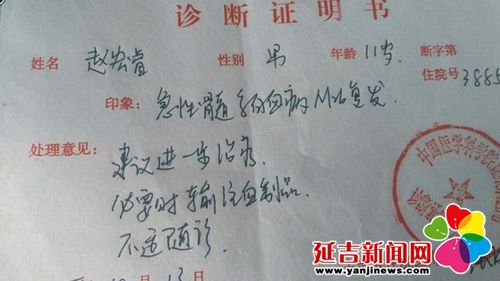 诊断证明书
姓名 赵宏睿 性别 男 年龄 11岁 断字第
住院号 3885
印象：急性髓系白血病M2复发.
处理意见：建议进一步治疗
必要时输注血制品
不适随诊.
月13日
中国医学科学院
诊断证明
延吉新闻网
www.yanjinews.com